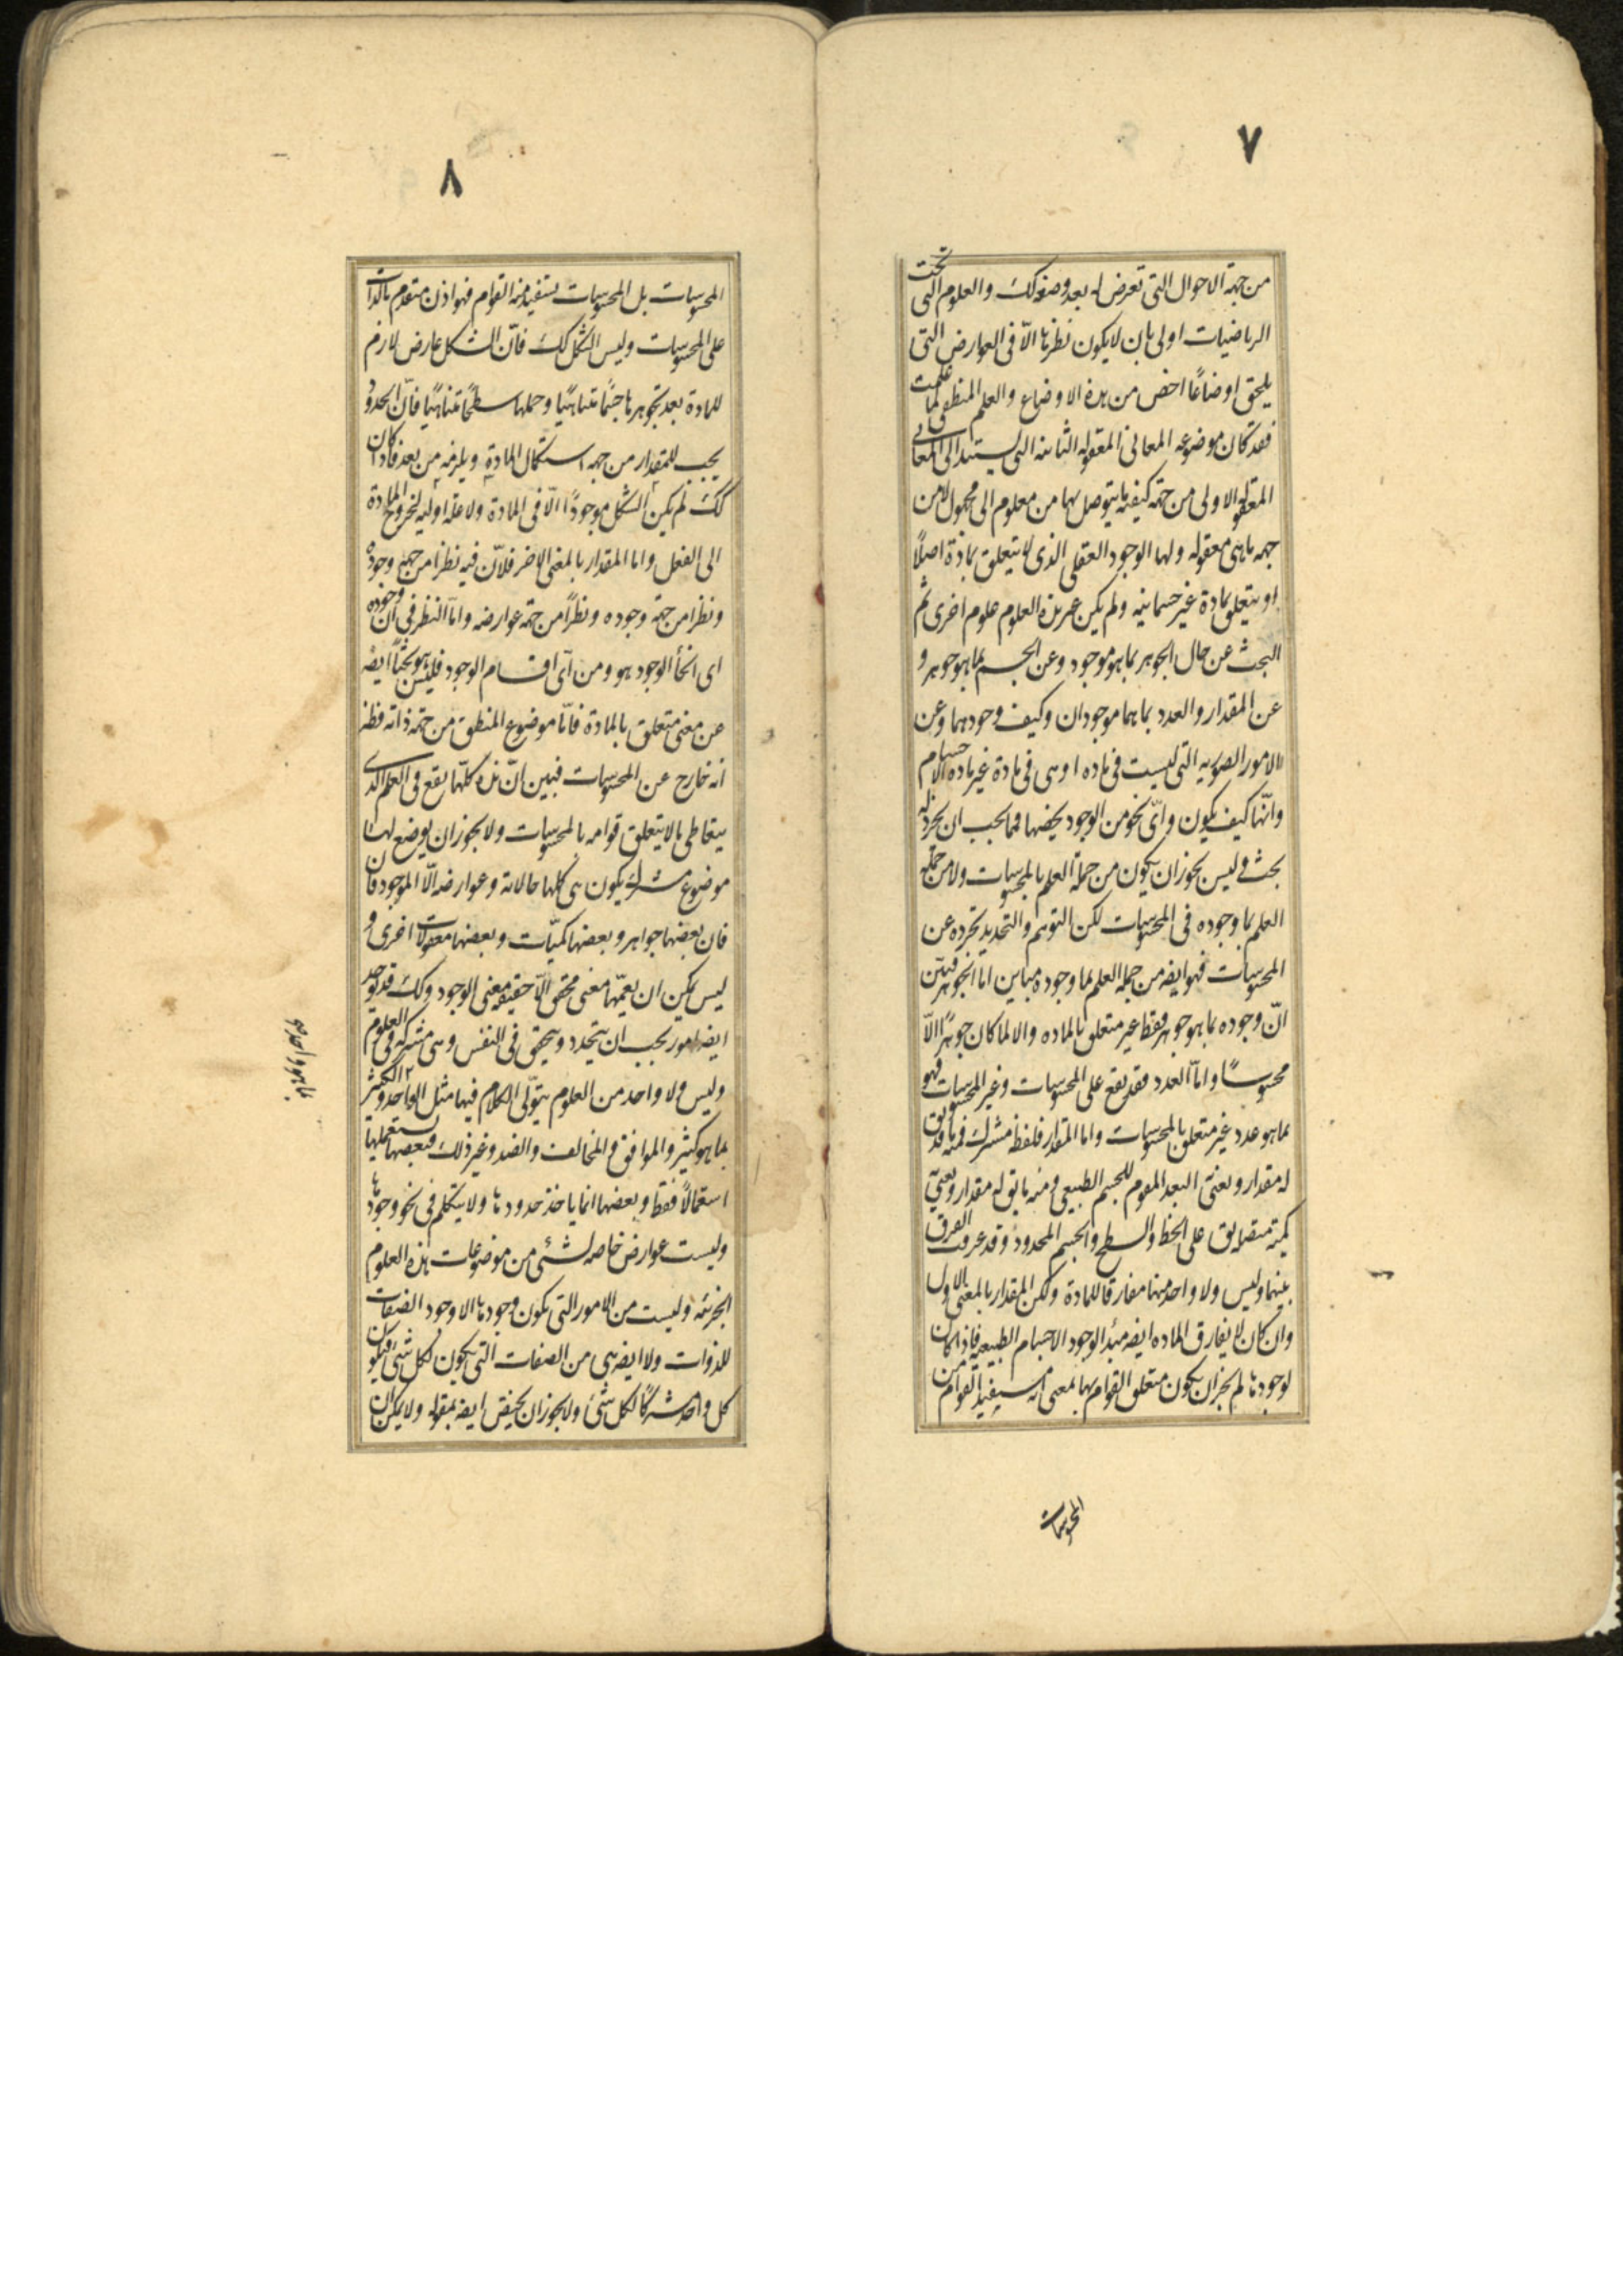 ٧
من جهة الاحوال التى تعرض له بعد وضعه كك والعلوم التى تحت
الرياضيات اولى بان لا يكون نظرها الّا فى العوارض التى
يلحق اوضاعًا اخص من هذه الاوضاع والعلم المنطقى كما علمت
فقد كان موضوعه المعانى المعقوله الثانيه التى يستند الى المعانى
المعقوله الاولى من جهة كيفية ما يتوصل بها من معلوم الى مجهول لا من
جهه ما هى معقوله ولها الوجود العقلى الذى لا يتعلق بمادة اصلًا
او يتعلق بمادة غير جسمانيه ولم يكن غير هذه العلوم علوم اخرى ثم
البحث عن حال الجوهر بما هو موجود وعن الجسم بما هو جوهر و
عن المقدار والعدد بما هما موجودان وكيف وجودهما وعن
الامور الصوريه التى ليست فى ماده او هى فى مادة غير ماده الاجسام
وانّها كيف يكون واىّ نحو من الوجود يخصّها فما يجب ان يجرد له
بحث وليس يجوز ان يكون من جملة العلم بالمحسوسات ولا من جملة
العلم بما وجوده فى المحسوسات لكن التوهم والتحديد يجرده عن
المحسوسات فهو ايضه من جمله العلم بما وجوده مباين اما الجوهر فبيّن
انّ وجوده بما هو جوهر فقط غير متعلق بالماده والا لما كان جوهرًا الّا
محسوسًا واما العدد فقد يقع على المحسوسات وغير المحسوسات فهو
بما هو عدد غير متعلق بالمحسوسات واما المقدار فلفظه مشترك فمنه ما قد يق
له مقدار ويعنى به البعد المقوم للجسم الطبيعى ومنه ما يق له مقدار ويعنى به
كمية متصله يق على الخط والسطح والجسم المحدود وقد عرفت الفرق
بينهما وليس ولا واحد منهما مفارقا للمادة ولكن المقدار بالمعنى الاول
وان كان لا يفارق الماده ايضه مبدأ لوجود الاجسام الطبيعيه فاذا كان
لوجودها لم يجز ان يكون متعلق القوام بها بمعنى انه يستفيد القوام من
المحسوسات
٨
المحسوسات بل المحسوسات تستفيد منه القوام فهو اذن متقدم بالذات
على المحسوسات وليس الشكل كك فانّ الشكل عارض لازم
للمادة بعد تجوهرها جسمًا متناهيًا وحملها سطحًا متناهيًا فانّ الحدود
يجب للمقدار من جهه استكمال المادة به ويلزمه من بعد فاذا كان
كك لم يكن الشكل موجودًا الّا فى المادة ولا علة اوليه لخروج المادة
الى الفعل واما المقدار بالمعنى الاخر فلانّ فيه نظرًا من جهة وجوده
ونظرًا من جهة وجوده ونظرًا من جهة عوارضه وامّا النظر فى ان وجوده
اى انحاء الوجود هو ومن اىّ اقسام الوجود فليس هو بحثًا ايضه
عن معنى متعلق بالمادة فامّا موضوع المنطق من جهة ذاته فظه
انه خارج عن المحسوسات فبيّن انّ هذه كلّها يقع فى العلم الذى
يتعاطى ما لا يتعلق قوامه بالمحسوسات ولا يجوز ان يوضع لها
موضوع مشترك يكون هى كلها حالاته وعوارضه الّا الموجود فان
فان بعضها جواهر وبعضها كميّات وبعضها مقولات اخرى و
ليس يمكن ان يعمّها معنى محقق الّا حقيقة معنى الوجود وكك قد يوجد
ايضه امور يجب ان يتحدد ويتحقق فى النفس وهى مشتركة فى العلوم
وليس ولا واحد من العلوم يتولّى الكلام فيها مثل الواحد والكثير
بما هو كثير والموافق والمخالف والضد وغير ذلك فبعضها يستعملها
استعمالًا فقط وبعضها انما ياخذ حدودها ولا يتكلم فى نحو وجودها
وليست عوارض خاصه لشئ من موضوعات هذه العلوم
الجزئيه وليست من الامور التى يكون وجودها الا وجود الصفات
للذوات ولا ايضه هى من الصفات التى يكون لكل شئ فيكون
كل واحد مشتركًا لكل شئ ولا يجوز ان يختص ايضه بمقوله ولا يمكن ان
بما هو واحد